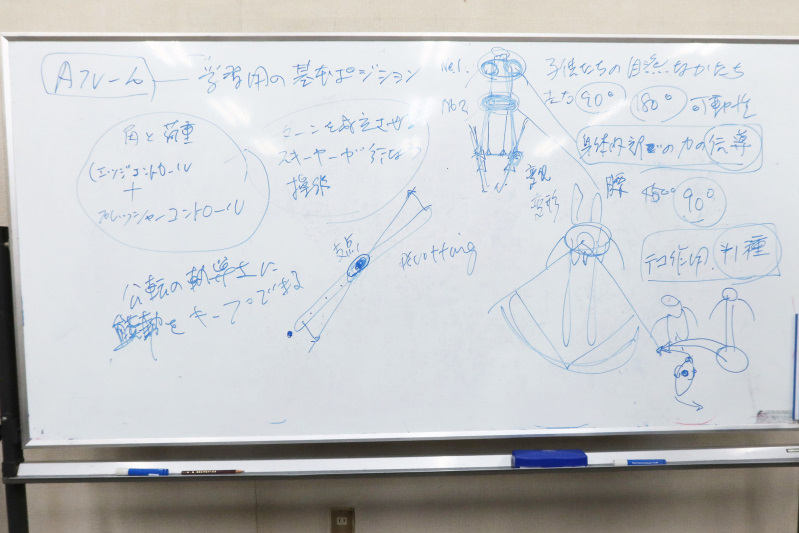 Aフレーム — 学習用の基本ポジション
角と荷重
(エッジコントロール
+
プレッシャーコントロール
ターンを成立させ
スキーヤーが行なう
操作
支点
Pivotting
公転の軌道上に
をキープできる
No1.
No2
子供たちの自然なかたち
90° 180° 可動性
身体内部での力の伝導
腰 90°
テコ作用 オ1種
変形